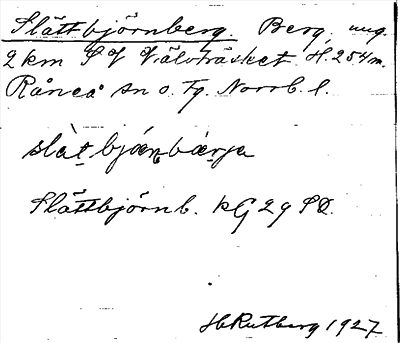 Slättbjörnberg. Berg, ung.
2 km S V Välvträsket. H. 254 m.
Råneå sn o. Tg. Norrb. l.
slàt bjǿn bàrja
Slättbjörnb. kG 29 SO.
H Rutberg 1927